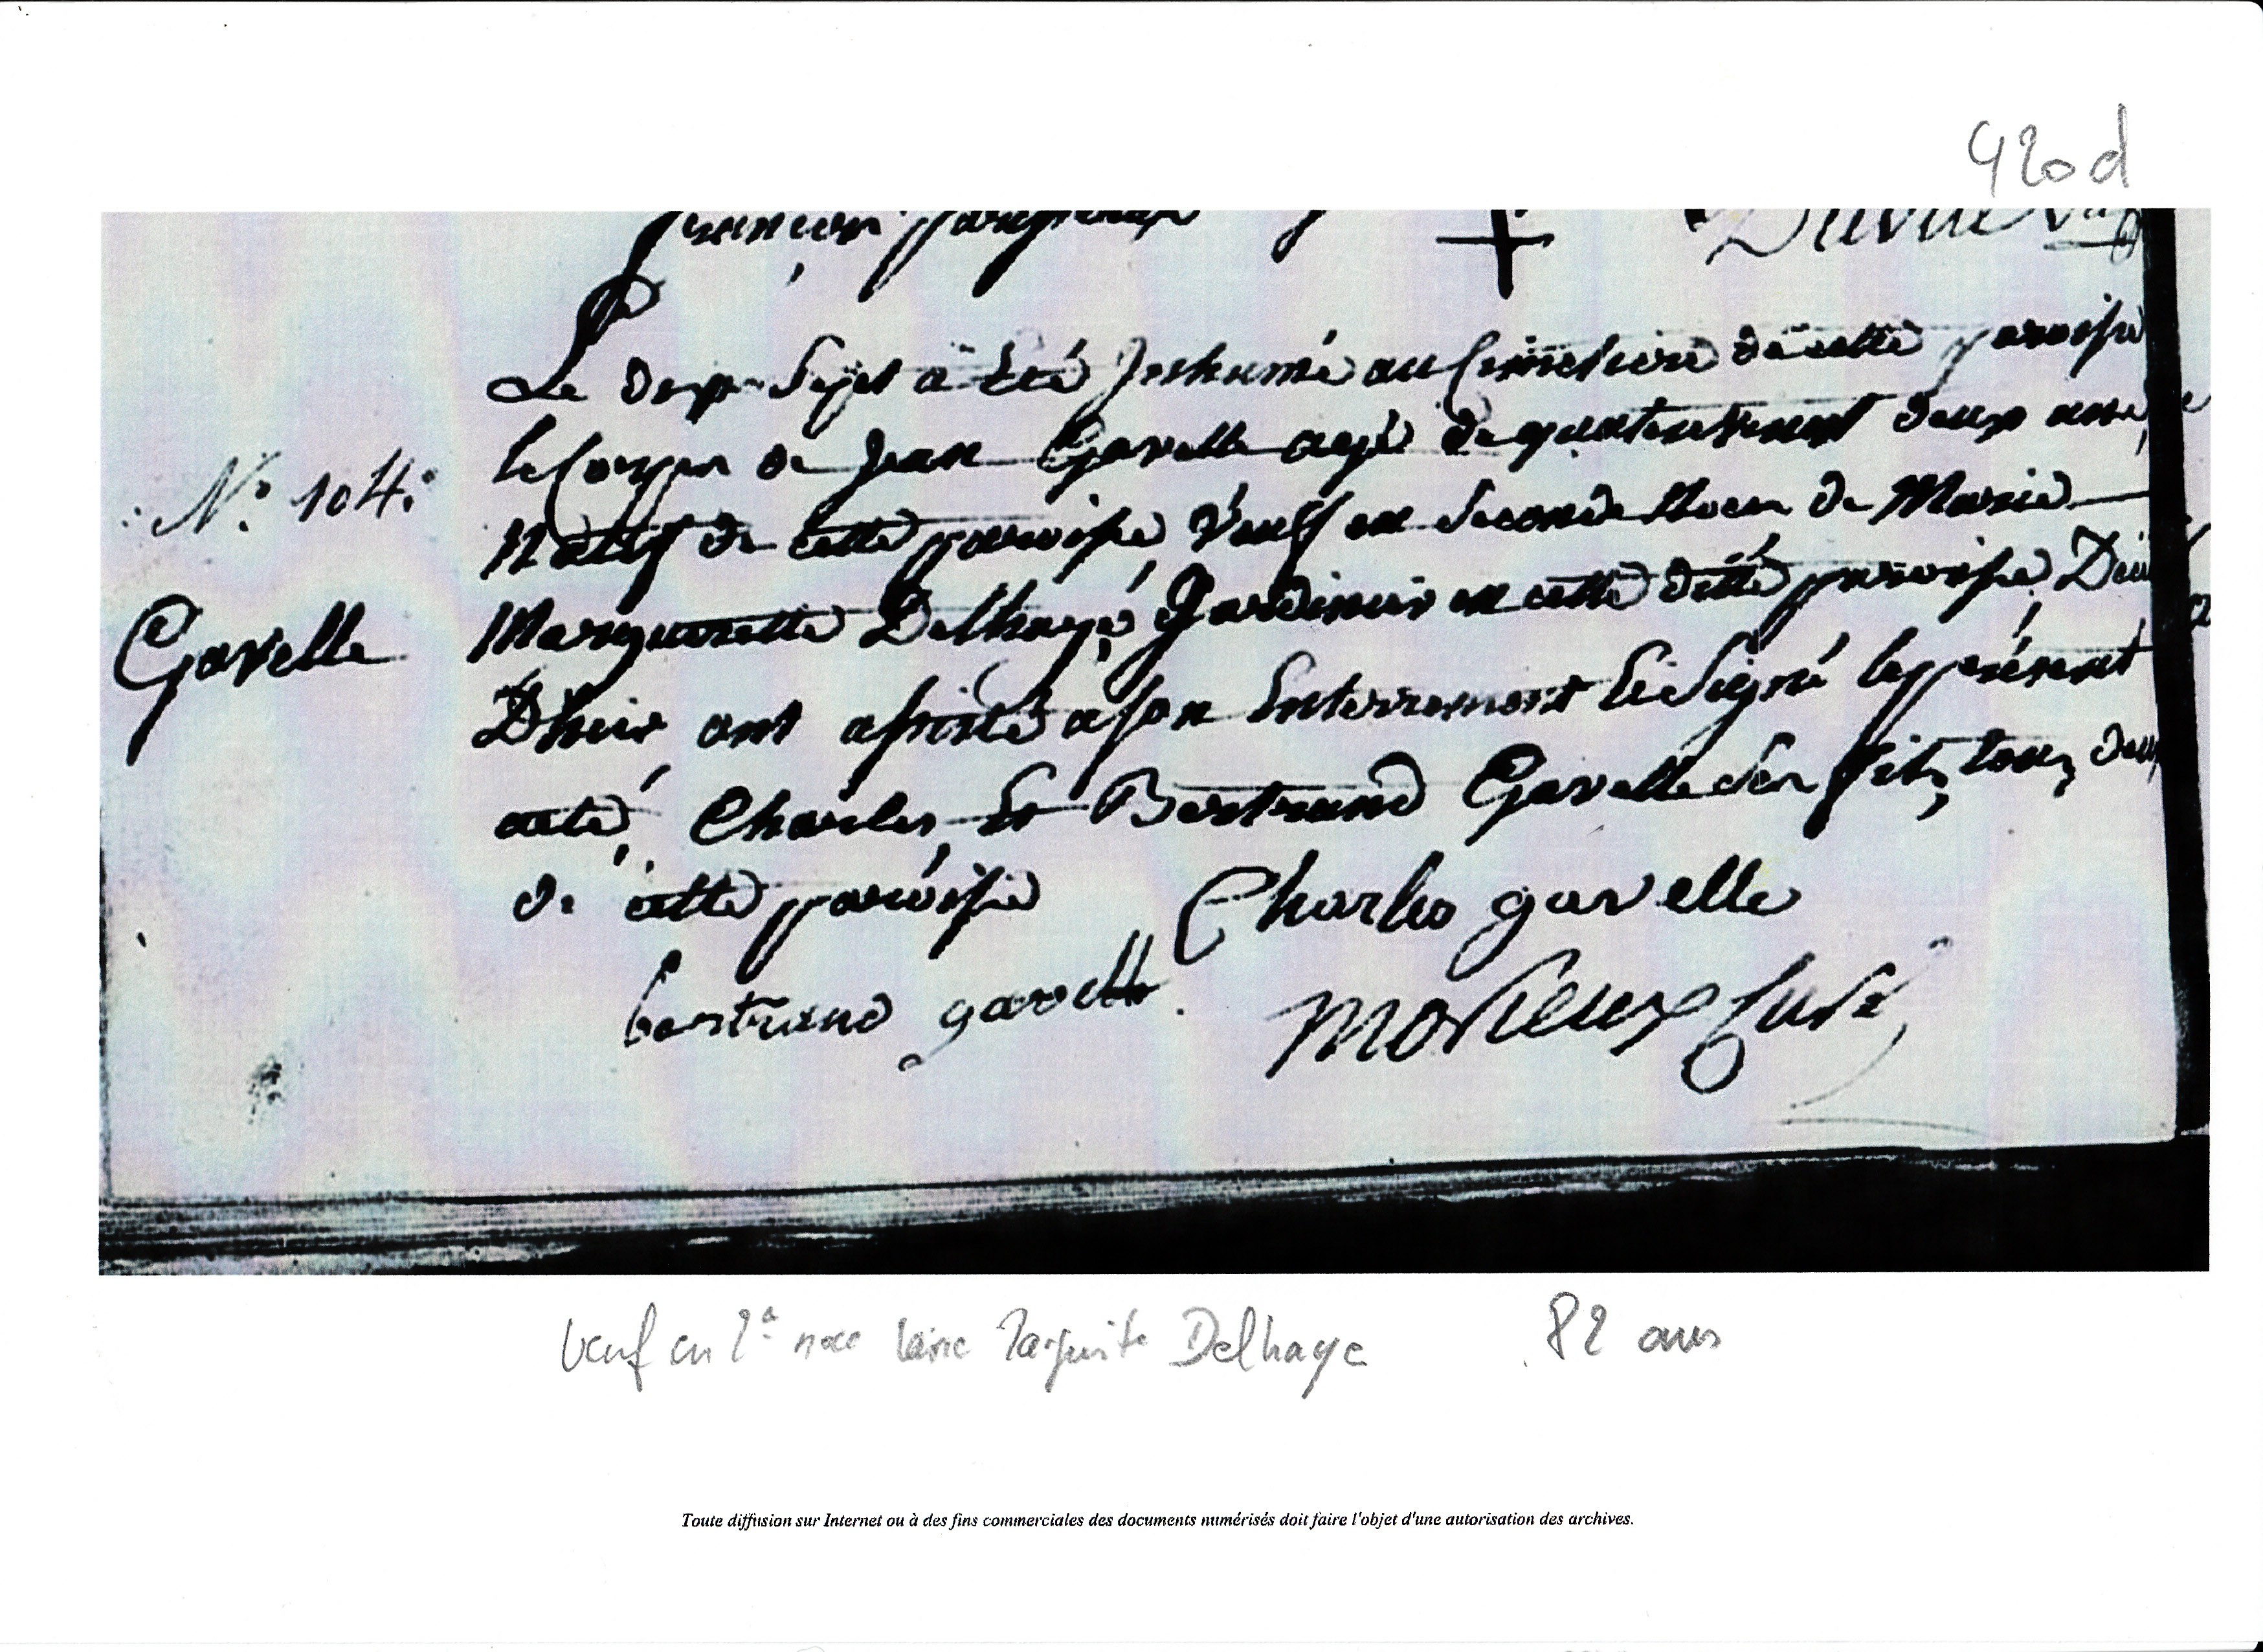 420 d
Le dix Sept a Eté Jnhumé au Cimetiere de cette paroisse
le Corps de Jean Gavelle agé de quatrevingt deux ans,
N.° 104.
Natif de cette paroisse, Veuf en Seconde Noces de Marie
Gavelle
Marguerette Delhaye, Jardinier en cette ditte paroisse, Décé
D'hier ont assisté a son Enterrement Et Signé le présent
acte, Charles, Et Bertrand Gavelle Ses fils, tous deux
de cette paroisse Charles gavelle
bertrand gavelle. Curé
Veuf en 2e noce Marie Marguerite Delhaye 82 ans
Toute diffusion sur Internet ou à des fins commerciales des documents numérisés doit faire l'objet d'une autorisation des archives.